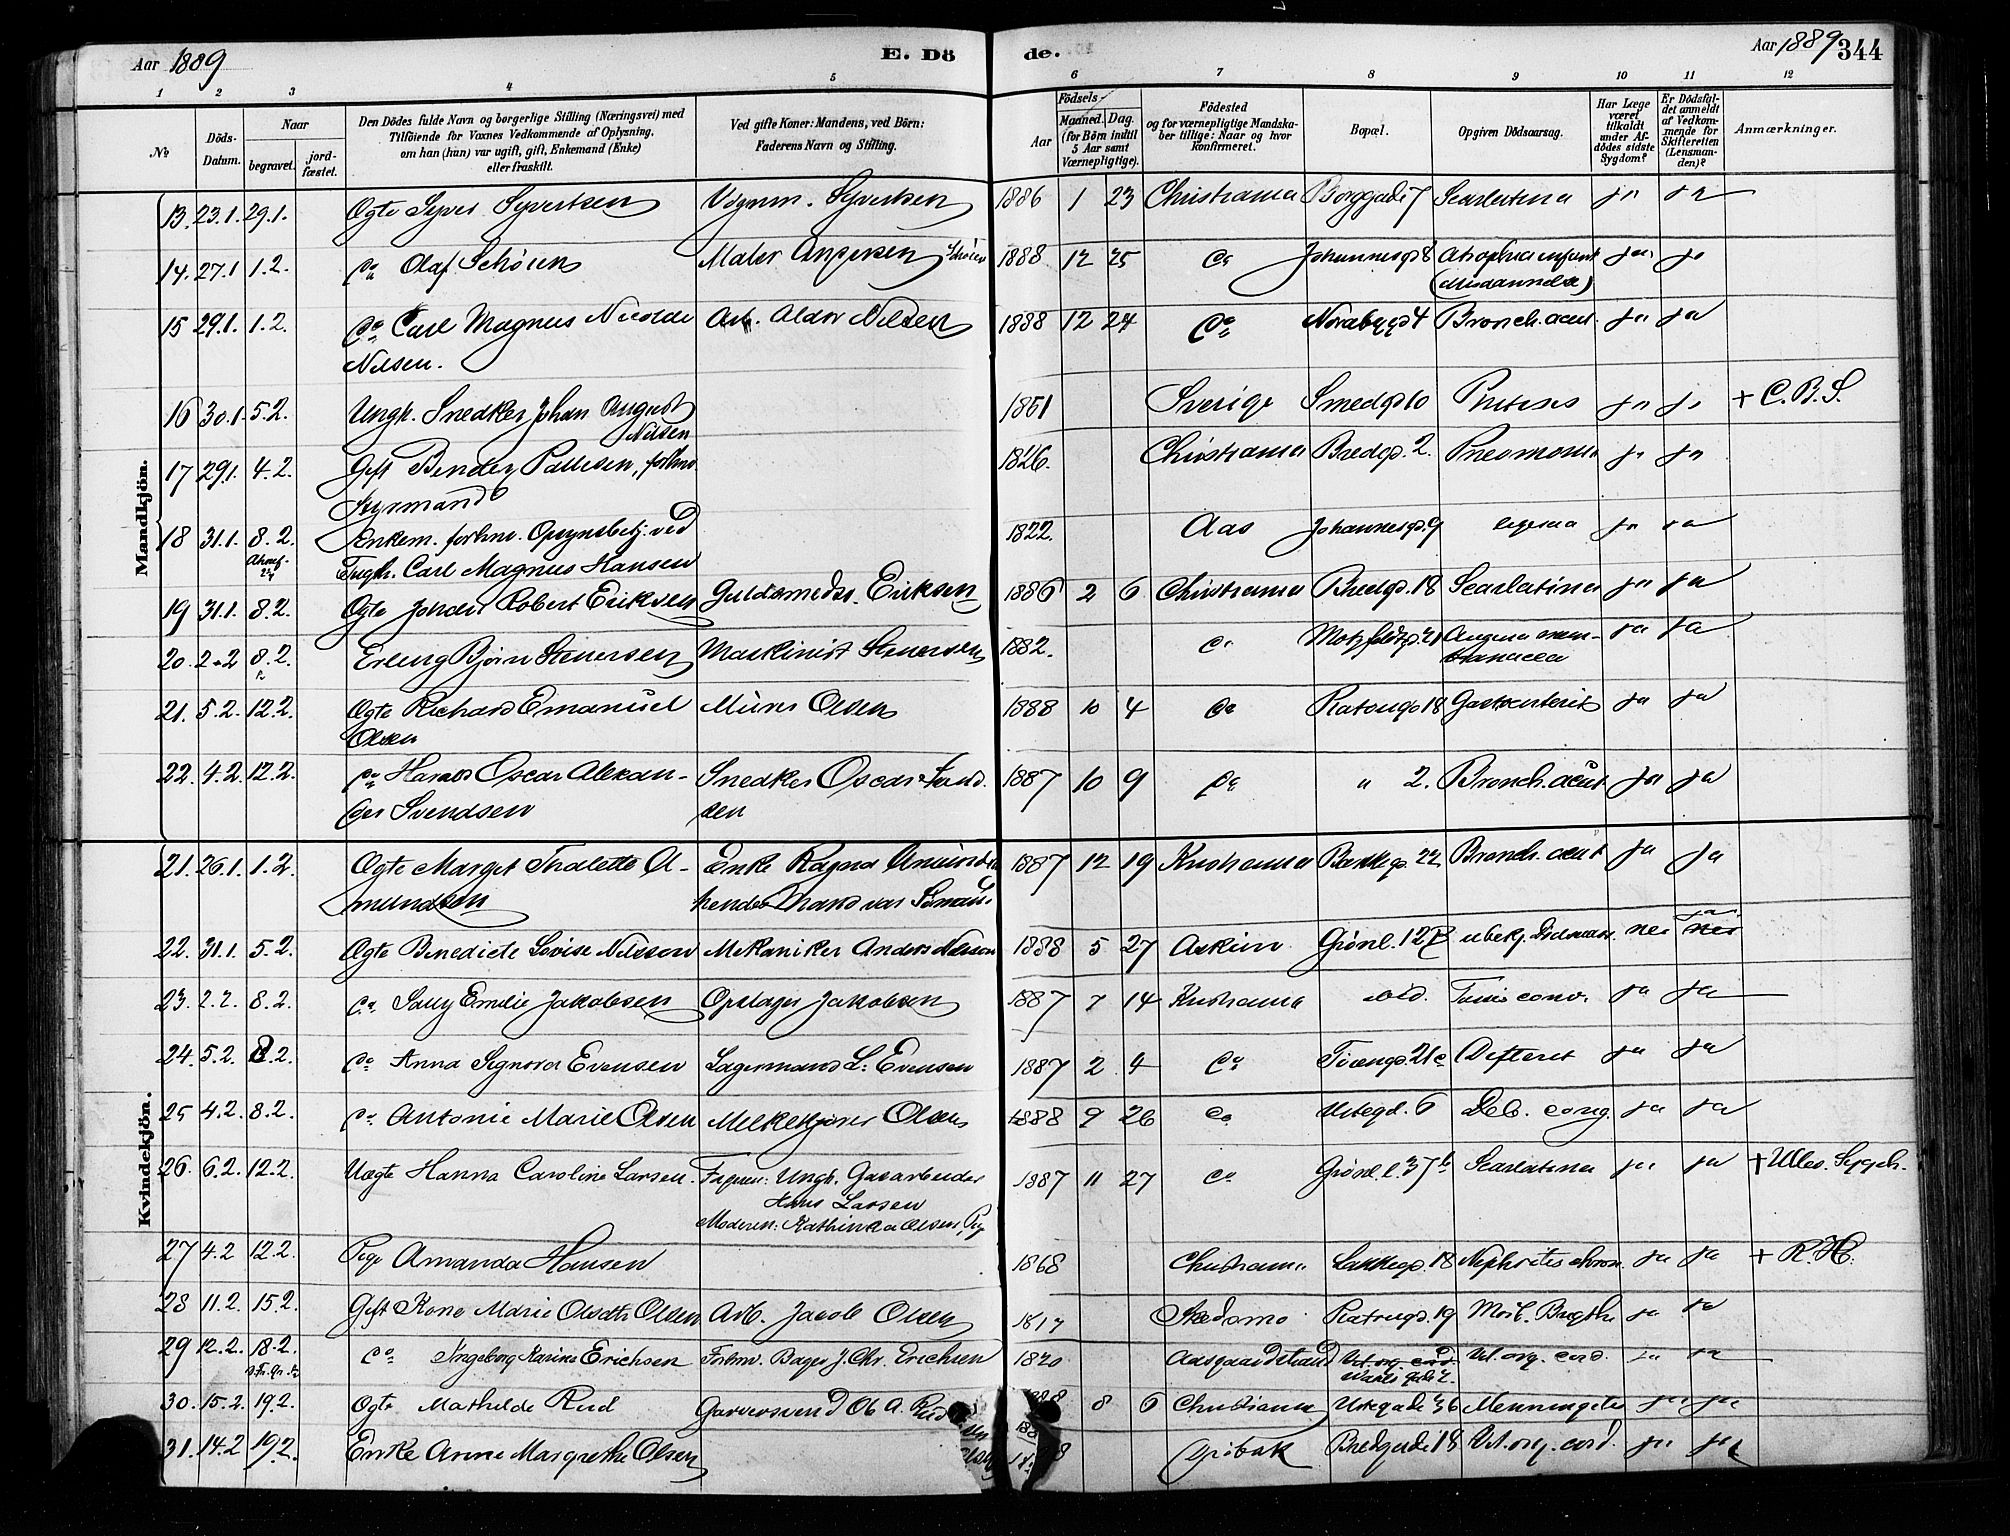 Aar 1889 E. Döde. Aar 1889 344
1 2 3 4 5 6 7 8 9 10 11 12
№ Döds-Datum. Naar begravet. jordfæstet. Den Dödes fulde Navn og borgerlige Stilling (Næringsvei) med Tilföiende for Voxnes Vedkommende af Oplysning, om han (hun) var ugift, gift, Enkemand (Enke) eller fraskilt. Ved gifte Koner: Mandens, ved Börn: Faderens Navn og Stilling. Födsels- Aar Maaned. Dag. (for Börn indtil 5 Aar samt Værnepligtige). Födested og for værnepligtige Mandskaber tillige: Naar og hvor Konfirmeret. Bopæl. Opgiven Dödsaarsag. Har Læge været tilkaldt under Afdödes sidste Sygdom? Er Dödsfaldet anmeldt af Vedkommende for Skifteretten (Lensmanden)? Anmærkninger.
Mandkjön.
13. 23.1. 29.1. Ogte Syver Syvertsen Vognm. Syvertsen 1886 1 23 Christiania Borggade 7 Scarlatina ja ja
14. 27.1 1.2. Do Olaf Schøien Maler Andersen Schøien 1888 12 25 Do Johannesgd 8 Atrophia infant ja ja
15 29.1. 1.2. Do Carl Magnus Nicolai Nilsen. Arb. Nilsen 1888 12 24 Do Norabygd 4 Bronch. acut. ja ja
16 30.1. 5.2. Ungk. Snedker Johan August Nilsen 1861 Sverige Smedgd 10 ja ja + C.B.S.
17 29.1. 4.2. Gift Pallesen, forhnv. Styrmand 1826. Christiania Bredgd. 2. Pneumonia ja ja
18 31.1. 8.2. Enkem. forhnv. Opsynsbetj. ved Tugth. Carl Magnus Hansen 1822. Aas Johannesgd. 9 ja ja
19 31.1. 8.2. Ogte Johan Robert Eriksen Guldsmedsv. Eriksen 1886 2 6 Christiania Bredgd. 18 Scarlatina ja ja
20. 2.2 8.2. Erling Bjørn Stenersen Maskinist Stenersen 1882. Do Motzfeldtgd. 21 Angina membranacea ja ja
21. 5.2. 12.2. Ogte Richard Emanuel Olsen Murer Olsen 1888 10 4 Do Ratengd 18 Gastroenterit ja ja
22. 4.2. 12.2. Do Harald Oscar Alexander Svendsen Snedker Oscar Svendsen 1887 10 9 Do " 2. Bronch. acut ja ja
Kvindekjön.
21. 26.1. 1.2. Ogte Margit Thalette Amundsen Enke Ragna Amundsen hendes Mand var Sømand 1887 12 19 Kristiania Bakkegd. 22 Bronch. acut ja ja
22. 31.1. 5.2. Ogte Benedicte Lovise Nilsson Mekaniker Anders Nilsson 1888 5 27 Askim Grønl. 12 B ubekj. Dødsaars. nei nei ja
23. 2.2. 8.2. Do Sally Emilie Jakobsen Opslager Jakobsen 1887 7 14 Kristiania ibid. Tussis conv. ja ja
24. 5.2. 8.2. Do Anna Signora Evensen Lagermand L. Evensen 1887 2 4 Do Tøiengd. 21 c Difterit ja ja
25 4.2. 8.2. Do Antonie Marie Olsen Melkekjører Olsen 1888 9 26 Do Urtegd. 6 Deb. cong. ja ja
26. 6.2. 12.2. Uægte Hanna Caroline Larsen. Faderen: Ungk. Gasarbeider Hans Larsen Moderen: Kathinka Olsen, Pige 1887 11 27 Do Grønl. l. 37 b Scarlatina ja ja + Ullev. Sygeh.
27 4.2 12.2. Pige Amanda Hansen 1868 Christiania Lakkegd. 18 Nephritis chron. ja ja + R.H.
28 11.2. 15.2. Gift Kone Marie Olsdtr Olsen Arb. Jacob Olsen 1817 Skedsmo Ratengd. 19 Morb. Brigthi ja ja
29 12.2. 18.2. Do Ingeborg Karine Erichsen Forhnv. Bager J. Chr. Erichsen 1820 Aasgaardstrand Vit. org. cord. ja ja
30. 15.2. 19.2. Ogte Mathilde Rud Garversvend Ol. A. Rud 1888 8 6 Christiania Urtegade 36 Menningitis ja ja
31. 14.2 19.2. Enke Anne Margrethe Olsen Drøbak Bredgade 18 Vit. org. cord. ja ja